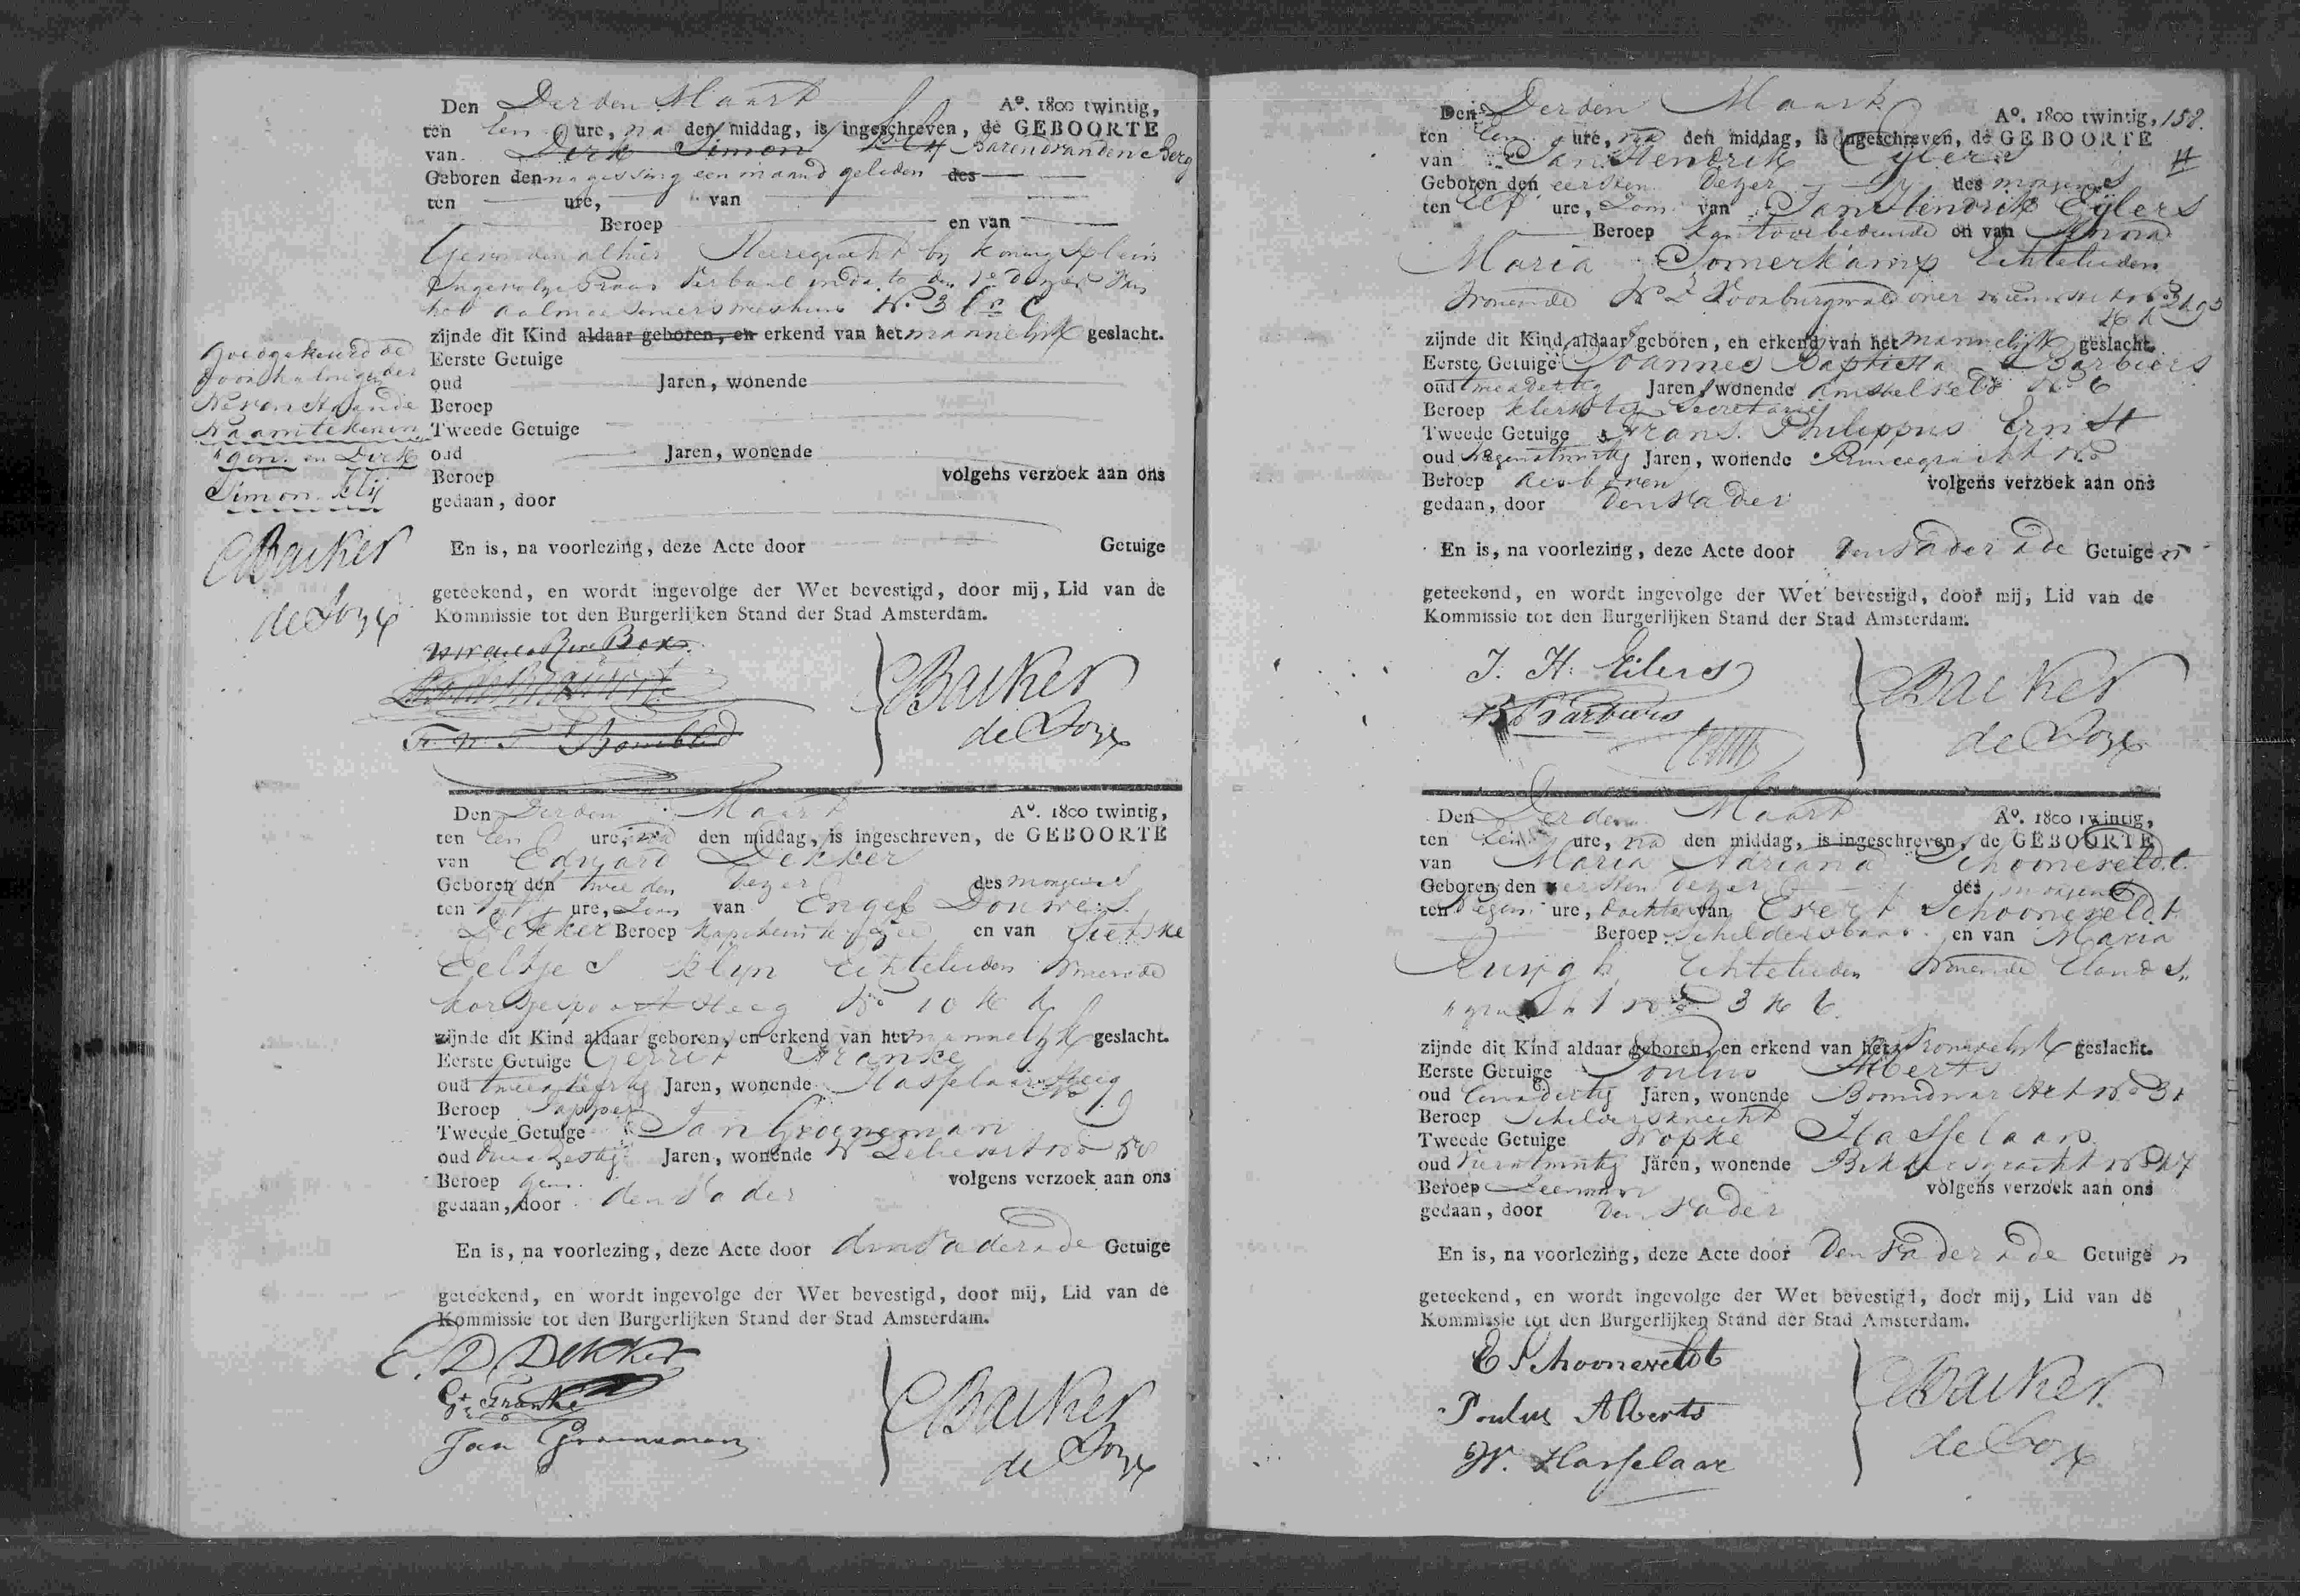 Den Derden Maart Aº. 1800 twintig,
ten Een ure, na den middag, is ingeschreven, de GEBOORTE
van Dirk Simon Barend van den Berg
Geboren den na gissing een maand geleden des
ten ure, van
Beroep en van
Gevonden alhier Heeregracht by Konings plein
Ingevolge Proces Verbaal in dato den 1e dezer
het Aalmoeseniersweeshuis Nº 3
zijnde dit Kind aldaar geboren, en erkend van het mannelijk geslacht.
Eerste Getuige
oud Jaren, wonende
Beroep
Tweede Getuige
oud Jaren, wonende
Beroep volgens verzoek aan ons
gedaan, door
En is, na voorlezing, deze Acte door Getuige
geteekend, en wordt ingevolge der Wet bevestigd, door mij, Lid van de
Kommissie tot den Burgerlijken Stand der Stad Amsterdam.
Goedgekeurd de
doorhaling der
Nevenstaande
Naamtekenin
gen en Dirk
Simon
Backer
Backer
Den Derden Maart Aº. 1800 twintig,
ten Een ure, na den middag, is ingeschreven, de GEBOORTE
van Eduard Dekker
Geboren den tweeden dezer des morgens
ten ure, Zoon van Engel Douwes
Dekker Beroep Kapitein ter Zee en van Sietske
Eeltjes Klyn Echtelieden Wonende
Korsjespoortsteeg Nº 10 K k
zijnde dit Kind aldaar geboren, en erkend van het mannelyk geslacht.
Eerste Getuige Gerrit Franke
oud Jaren, wonende Hasselaarsteeg
Beroep Tapper
Tweede Getuige Jan Groeneman
oud Jaren, wonende
Beroep Geen volgens verzoek aan ons
gedaan, door den Vader
En is, na voorlezing, deze Acte door den Vader & de Getuige
geteekend, en wordt ingevolge der Wet bevestigd, door mij, Lid van de
Kommissie tot den Burgerlijken Stand der Stad Amsterdam.
E. D. Dekker
Gt Franke
Jan Groeneman
Backer
Den Derden Maart Aº. 1800 twintig, 158.
ten Een ure, na den middag, is ingeschreven, de GEBOORTE
van Jan Hendrik Eylers
Geboren den eersten dezer des morgens
ten Elf ure, Zoon van Jan Hendrik Eylers
Beroep Kantoorbediende en van
Maria Somerkamp Echtelieden
Wonende N Z Voorburgwal over
zijnde dit Kind aldaar geboren, en erkend van het mannelijk geslacht.
Eerste Getuige Joannes Baptista Barbiers
oud tweedertig Jaren, wonende Amstelveld Nº 6
Beroep Klerk ter Secretarie
Tweede Getuige Frans Philippus Ernst
oud Negentwintig Jaren, wonende Princegracht Nº
Beroep volgens verzoek aan ons
gedaan, door Den Vader
En is, na voorlezing, deze Acte door Den Vader & de Getuige n
geteekend, en wordt ingevolge der Wet bevestigd, door mij, Lid van de
Kommissie tot den Burgerlijken Stand der Stad Amsterdam.
J. H. Eilers
Barbiers
Backer
Den Derden Maart Aº. 1800 twintig,
ten Een ure, na den middag, is ingeschreven, de GEBOORTE
van Maria Adriana Schooneveldt
Geboren den eersten dezer des morgens
ten Negen ure, dochter van Evert Schooneveldt
Beroep Schildersbaas en van Maria
Ruijgh Echtelieden Wonende Elands
gracht Nº 3 K 6
zijnde dit Kind aldaar geboren, en erkend van het Vrouwelijk geslacht.
Eerste Getuige Poulus Alberts
oud Eenendertig Jaren, wonende Boomdwarsstr Nº 31
Beroep Schildersknecht
Tweede Getuige Wopke Hasselaar
oud Vierentwintig Jaren, wonende Bikkersgracht Nº 47
Beroep Zeeman volgens verzoek aan ons
gedaan, door Den Vader
En is, na voorlezing, deze Acte door Den Vader & de Getuige n
geteekend, en wordt ingevolge der Wet bevestigd, door mij, Lid van de
Kommissie tot den Burgerlijken Stand der Stad Amsterdam.
E Schooneveldt
Poulus Alberts
W. Hasselaar
Backer